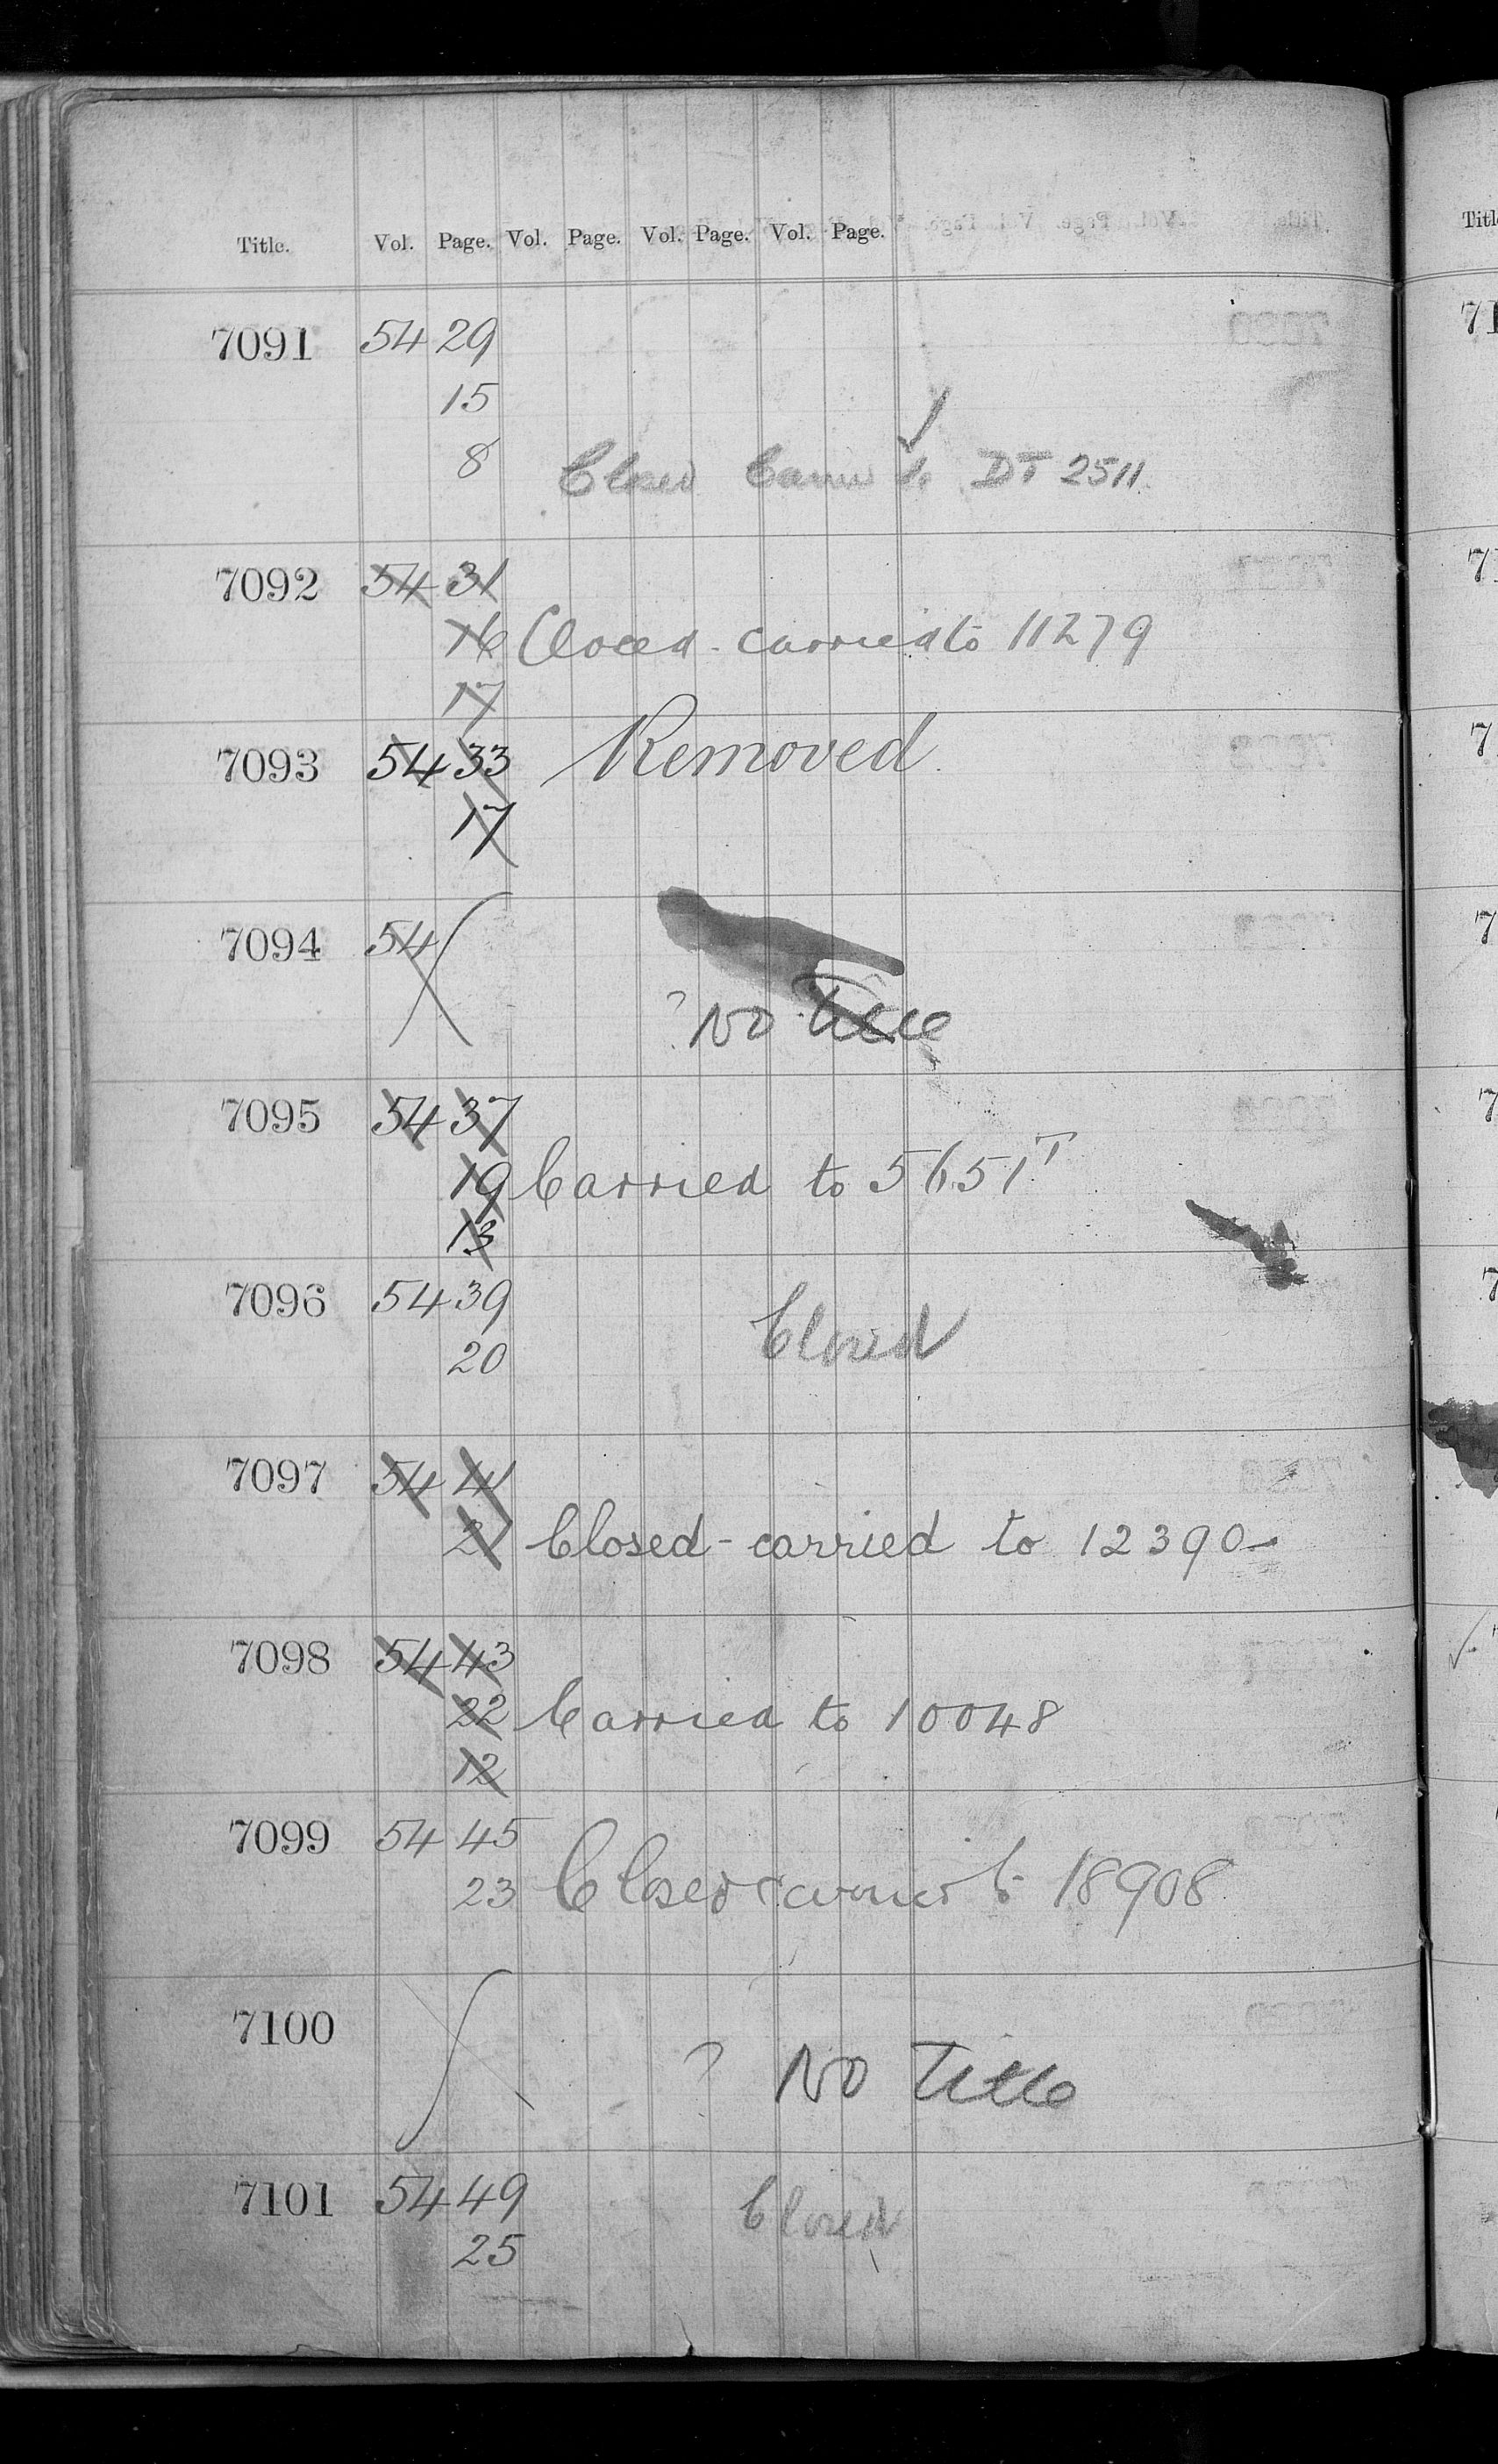 Title. Vol. Page. Vol. Page. Vol. Page. Vol. Page.
7091 54 29
15
8 Closed Carried to DT 2511
7092 54 31
16 Closed - carried to 11279
17
7093 54 33 Removed
17
7094 54
? No Title
7095 54 37
19 Carried to 5651 T
13
7096 54 39
Closed
20
7097 54 41
21 Closed - carried to 12390
7098 54 43
22 Carried to 10048
12
7099 54 45
23 Closed carried to 18908
7100
? No Title
7101 54 49 Closed
25